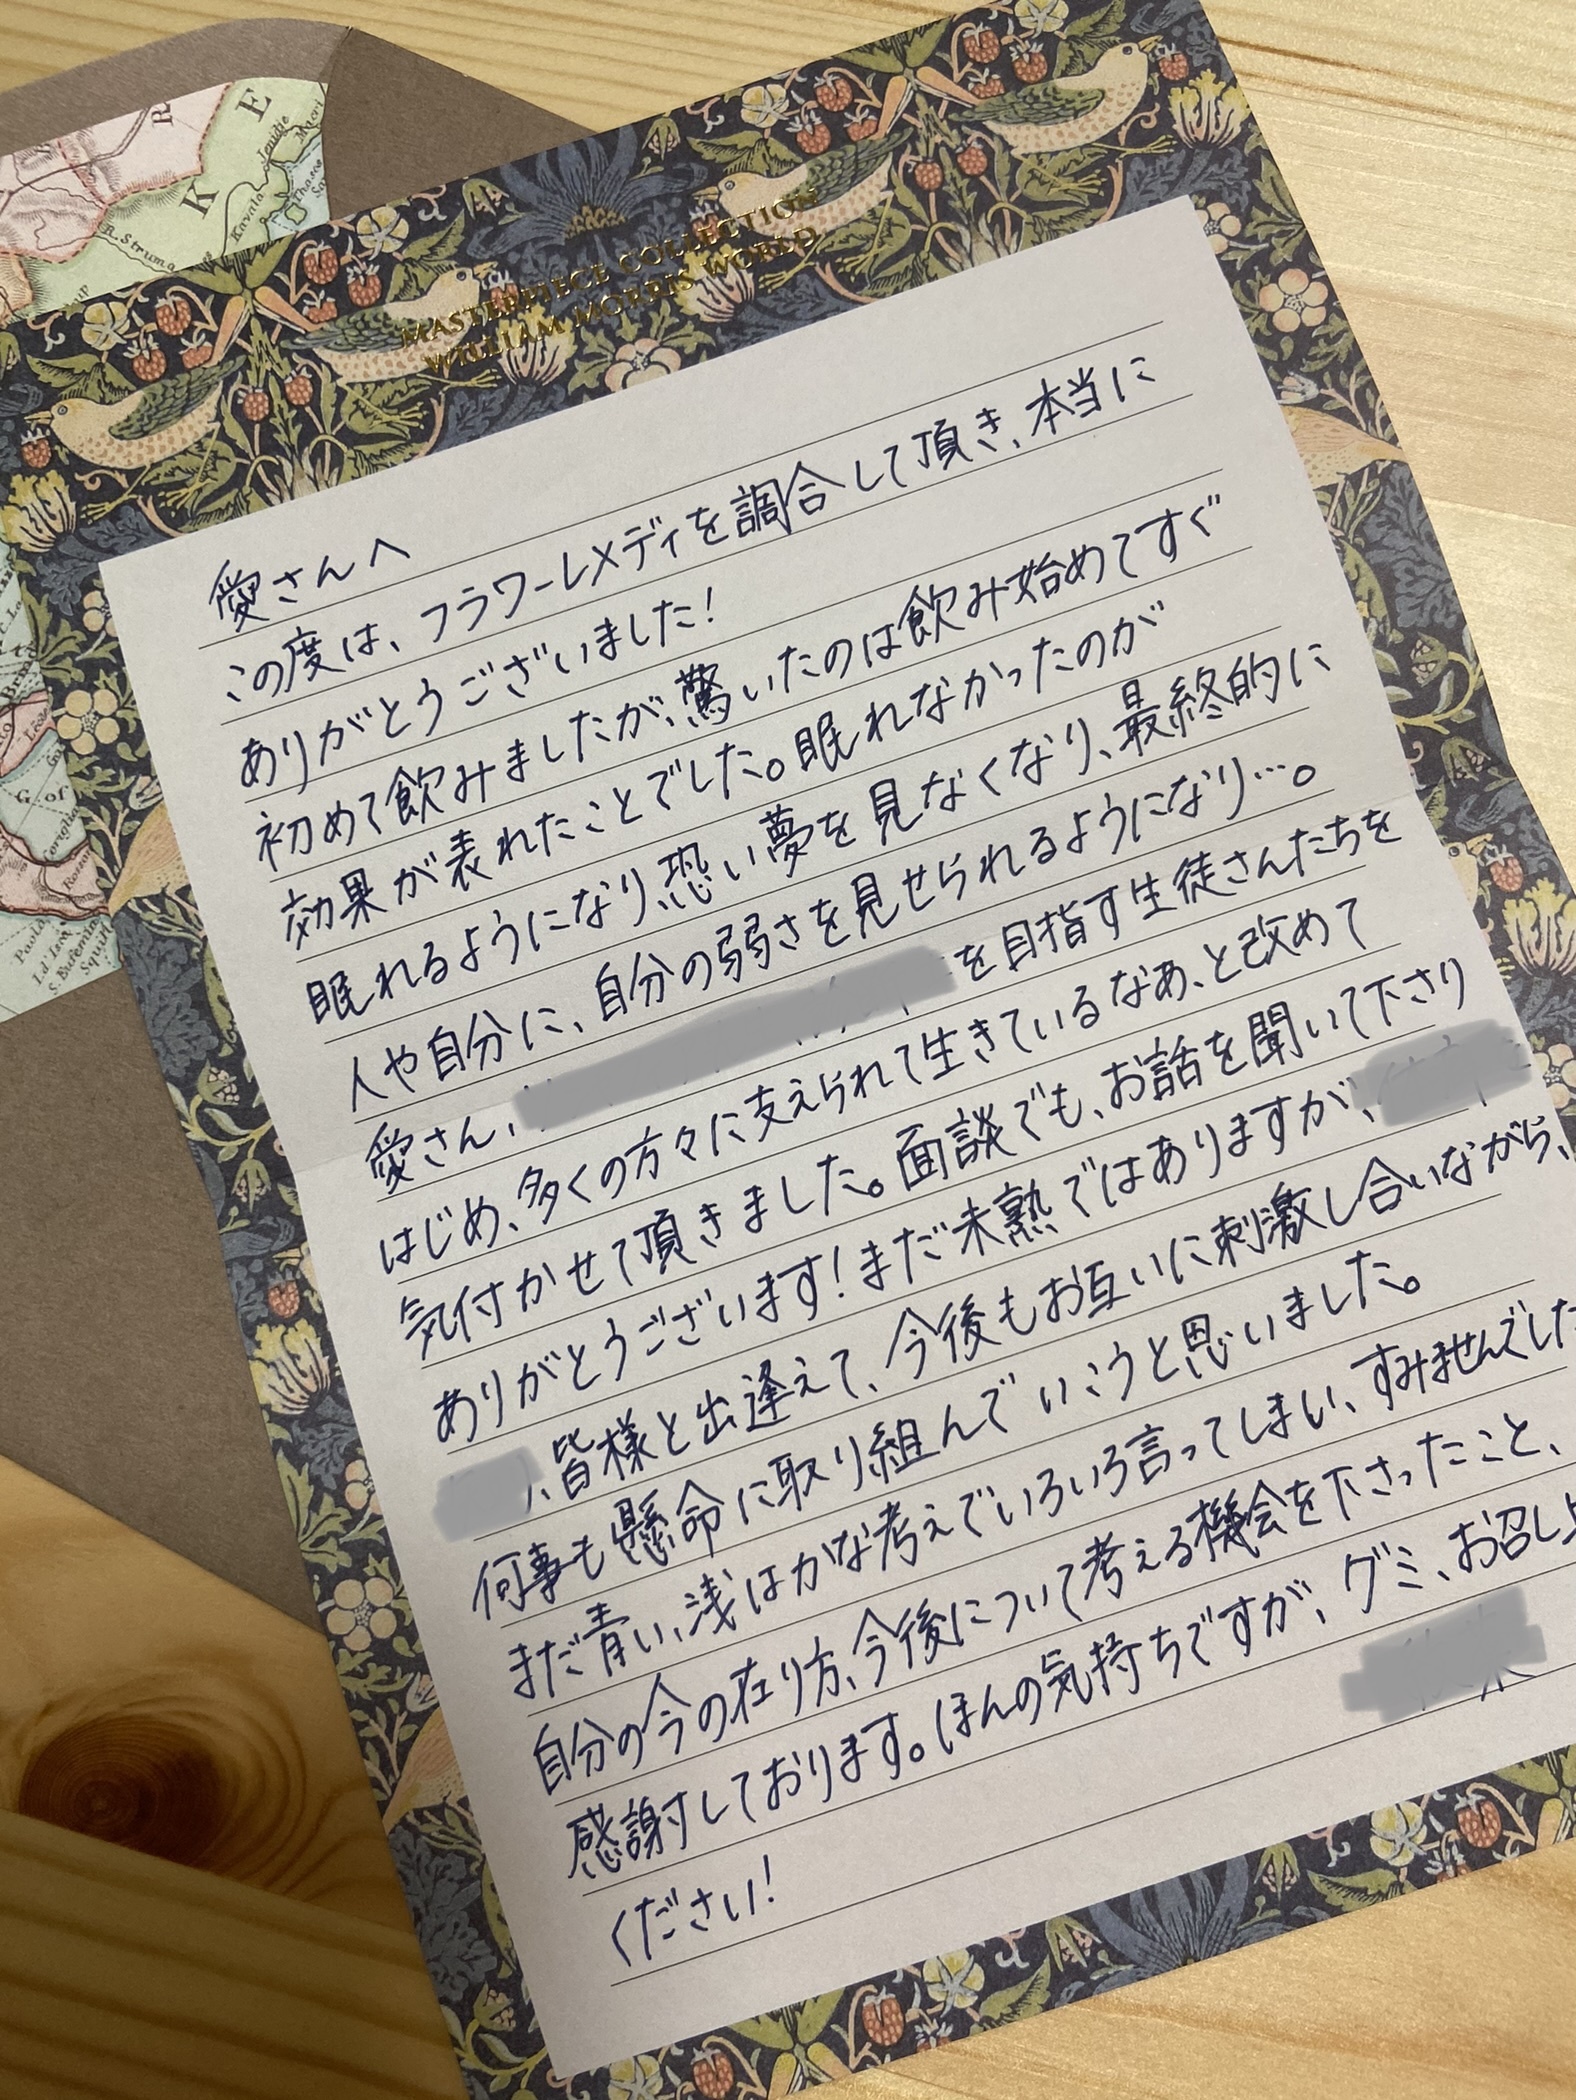 R
K
E
A.Struma
Kavala
Jenidje
Macri
Thaso
MASTERPIECE COLLECTION
WILLIAM MORRIS WORLD
愛さんへ
この度は、フラワーレメディを調合して頂き、本当に
ありがとうございました!
初めて飲みましたが、驚いたのは飲み始めてすぐ
効果が表れたことでした。眠れなかったのが
眠れるようになり、恐い夢を見なくなり、最終的に
人や自分に、自分の弱さを見せられるようになり…。
愛さん、 を目指す生徒さんたちを
はじめ、多くの方々に支えられて生きているなあ、と改めて
気付かせて頂きました。面談でも、お話を聞いて下さり
ありがとうございます!まだ未熟ではありますが、
、皆様と出逢えて、今後もお互いに刺激し合いながら、
何事も懸命に取り組んでいこうと思いました。
まだ青い、浅はかな考えでいろいろ言ってしまい、すみませんでした
自分の今の在り方、今後について考える機会を下さったこと、
感謝しております。ほんの気持ちですが、グミ、お召し上
ください!
G of
Paola
S. Bufemin
Squil